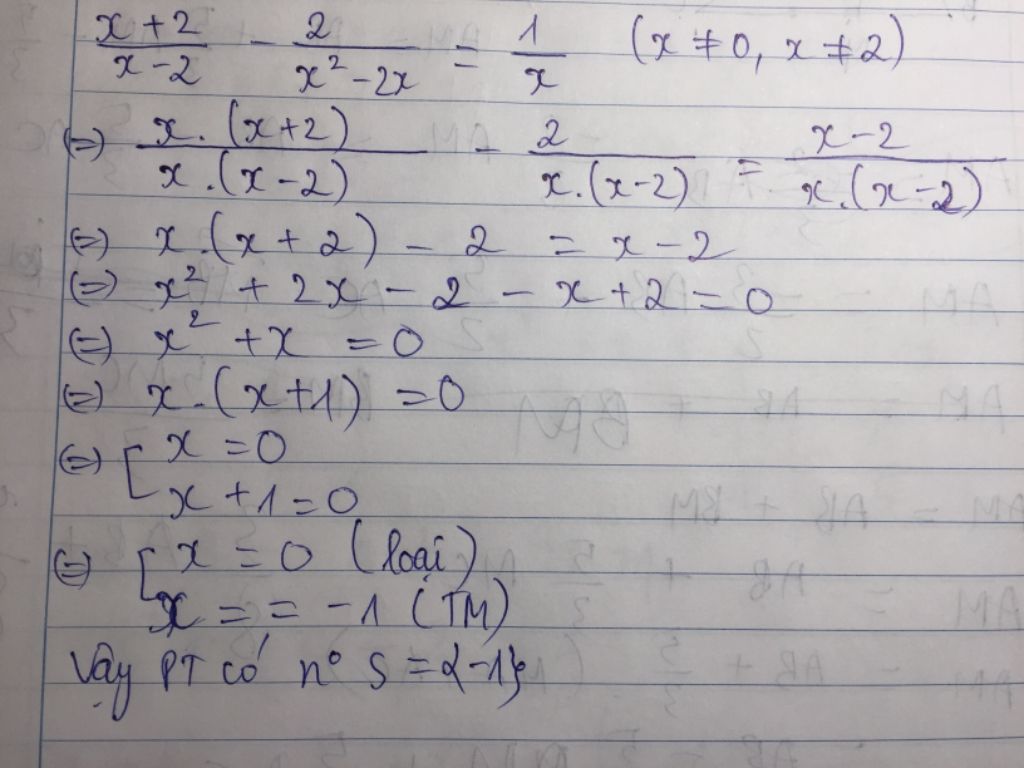 x+2/x-2 - 2/x²-2x = 1/x (x≠0, x≠2)
(=) x.(x+2)/x.(x-2) - 2/x.(x-2) = x-2/x.(x-2)
(=) x.(x+2) - 2 = x-2
(=) x² + 2x - 2 - x + 2 = 0
(=) x² + x = 0
(=) x.(x+1) = 0
(=) [ x = 0
x + 1 = 0
(=) [ x = 0 (loại)
x = = -1 (TM)
Vậy PT có n° S = {-1}